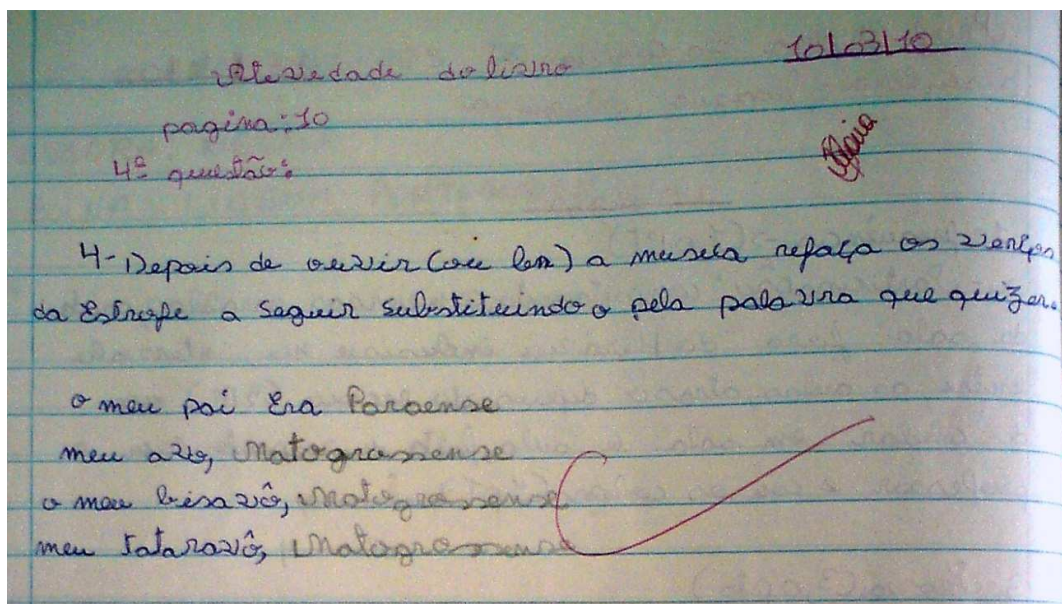 10/03/10
Atevedade do livro
pagina: 10
4ª questão:
4- Depois de ouvir (ou ler) a museca refaça os versos
da Estrofe a seguir substituindo o pela palavra que quizer.
o meu pai Era Paraense
meu avo, Matogrossense
o meu bisavô, Matogrossense
meu tataravô, Matogrossense